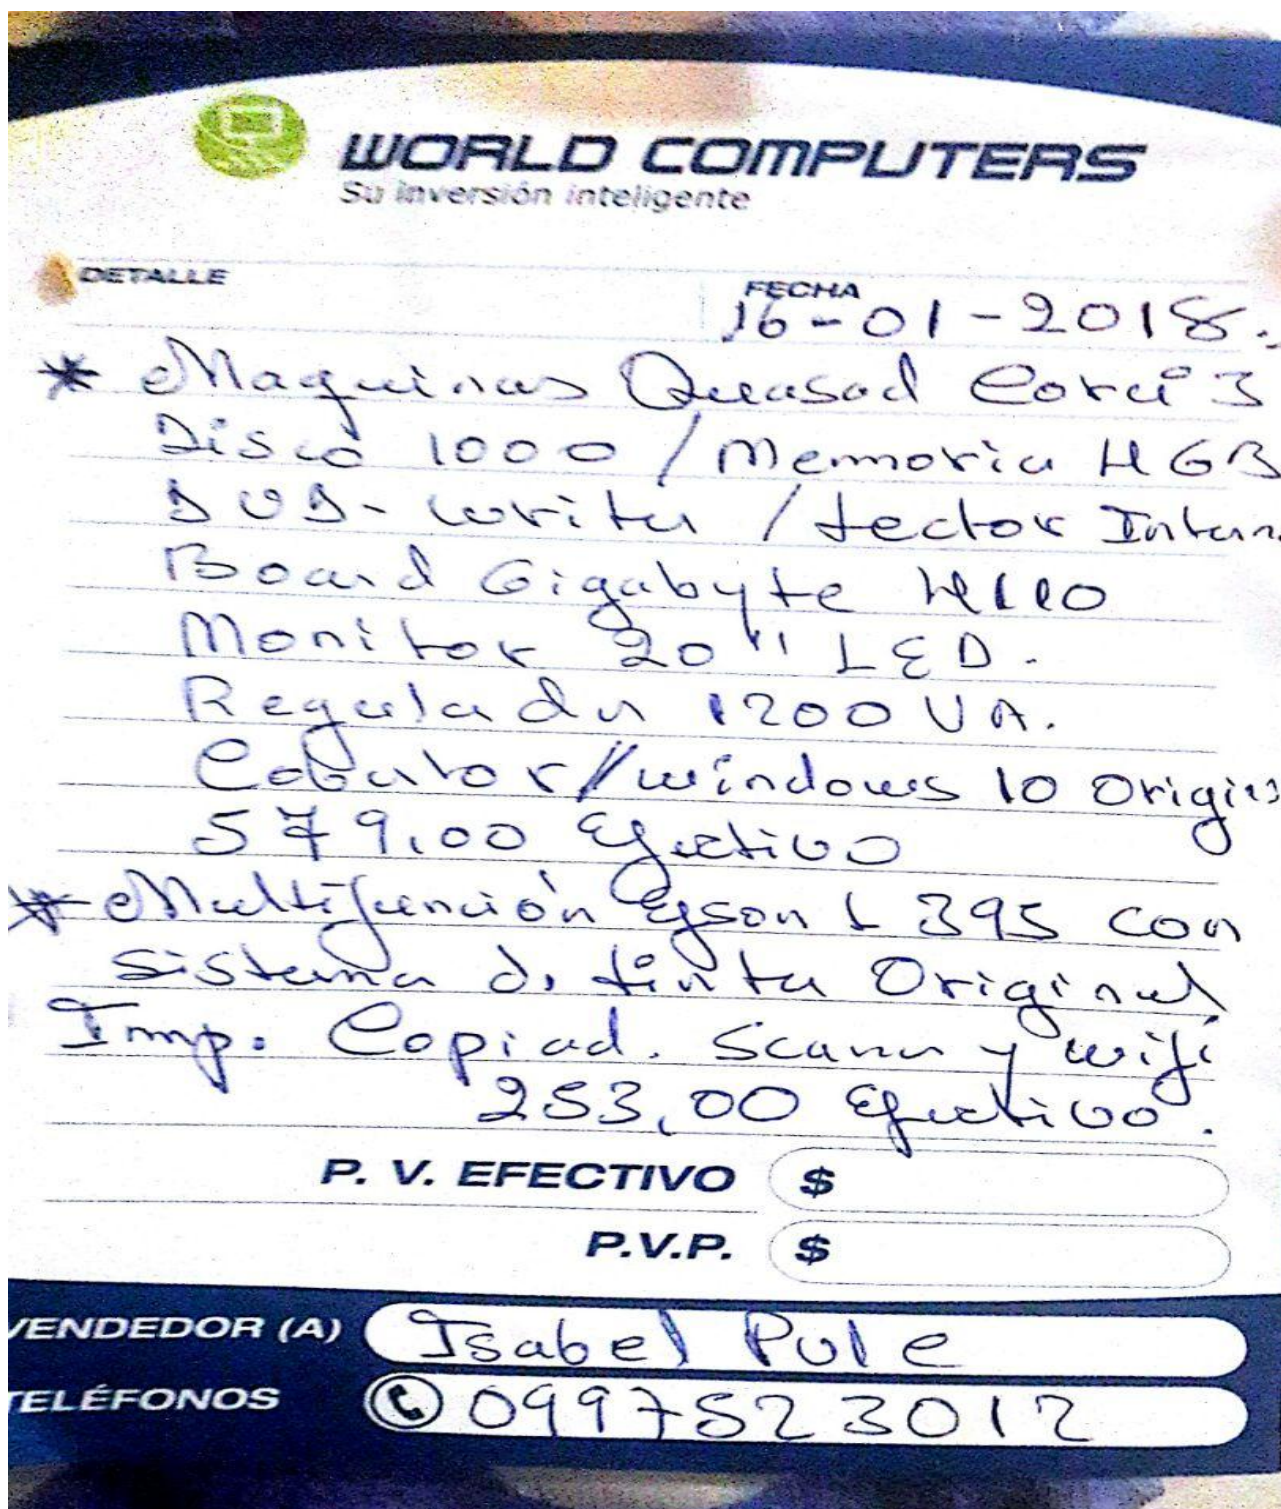 WORLD COMPUTERS
Su inversión inteligente
DETALLE
FECHA
16-01-2018.
* Maquinas Quasad Corei3
Disco 1000 / Memoria 4GB
DVD-writer / Lector Intern
Board Gigabyte H110
Monitor 20" LED.
Regulador 1200 VA.
/ windows 10 Origin
579,00 Efectivo
* Multifunción Epson L 395 con
sistema de tinta Original
Imp. Copiad. Scanner y wifi
253,00 Efectivo.
P. V. EFECTIVO $
P.V.P. $
VENDEDOR (A) Isabel Pule
TELÉFONOS 0997523012